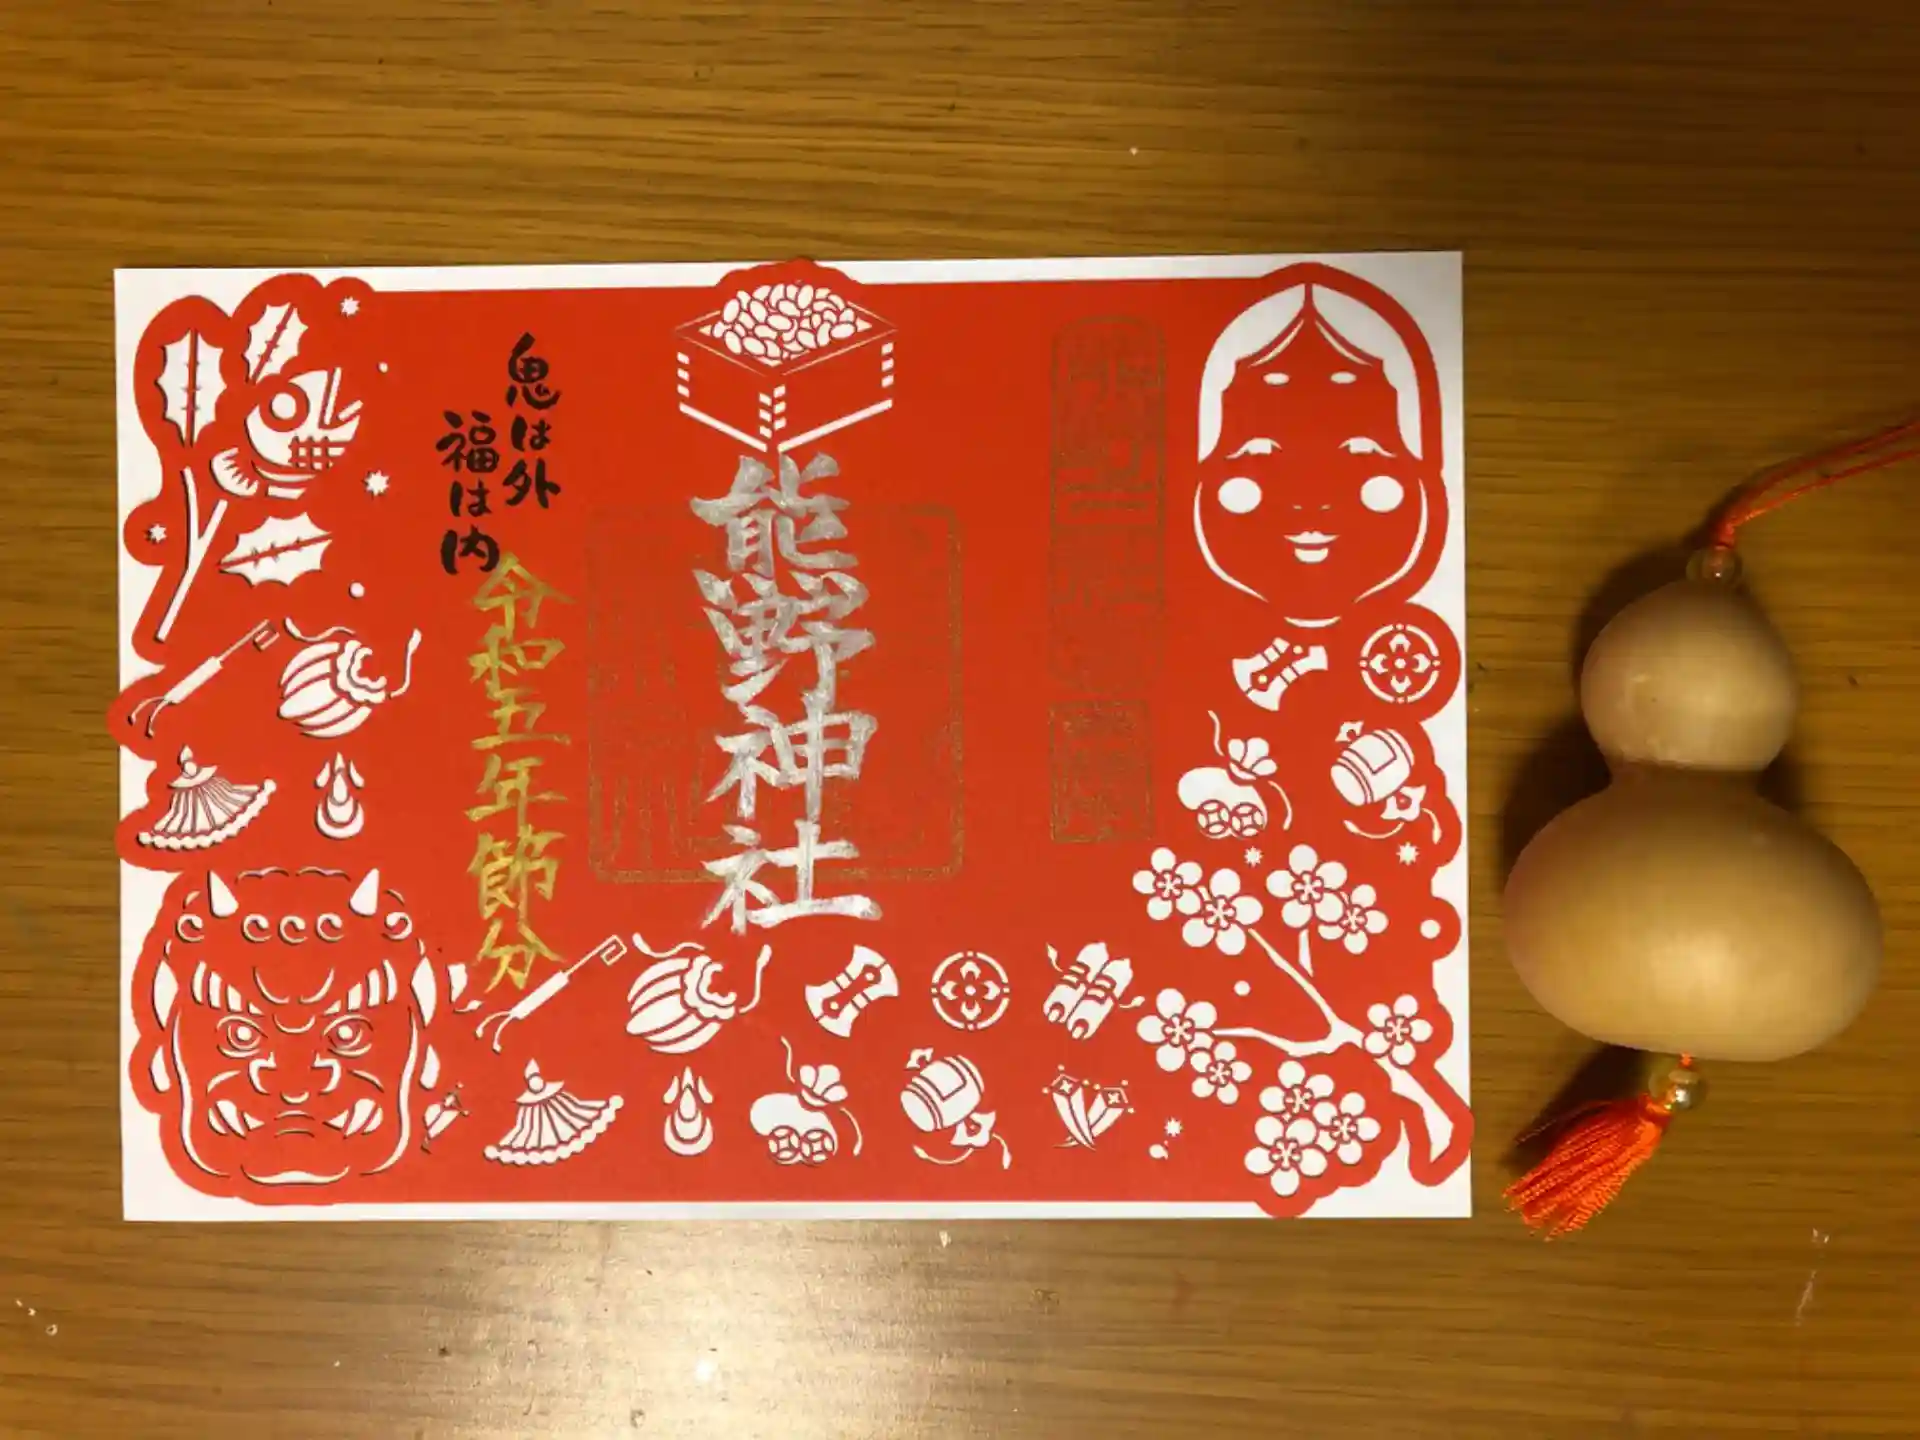 熊野神社
鬼は外
福は内
令和五年節分